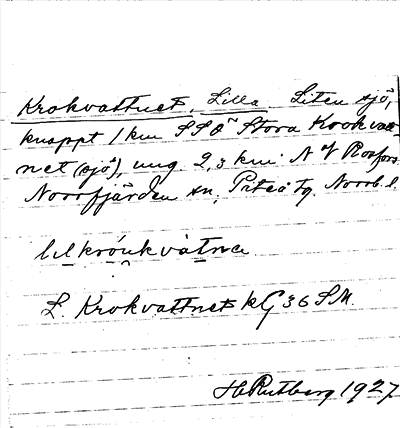 Krokvattnet, Lilla. Liten sjö,
knappt 1 km SSÖ Stora Krokvatt-
net (sjö), ung. 2,3 km. N Rosfors.
Norrfjärden sn, Piteå tg. Norrb. l.
lilkróukvàtne
L. Krokvattnet kG 36 SM.
H. Rutberg 1927